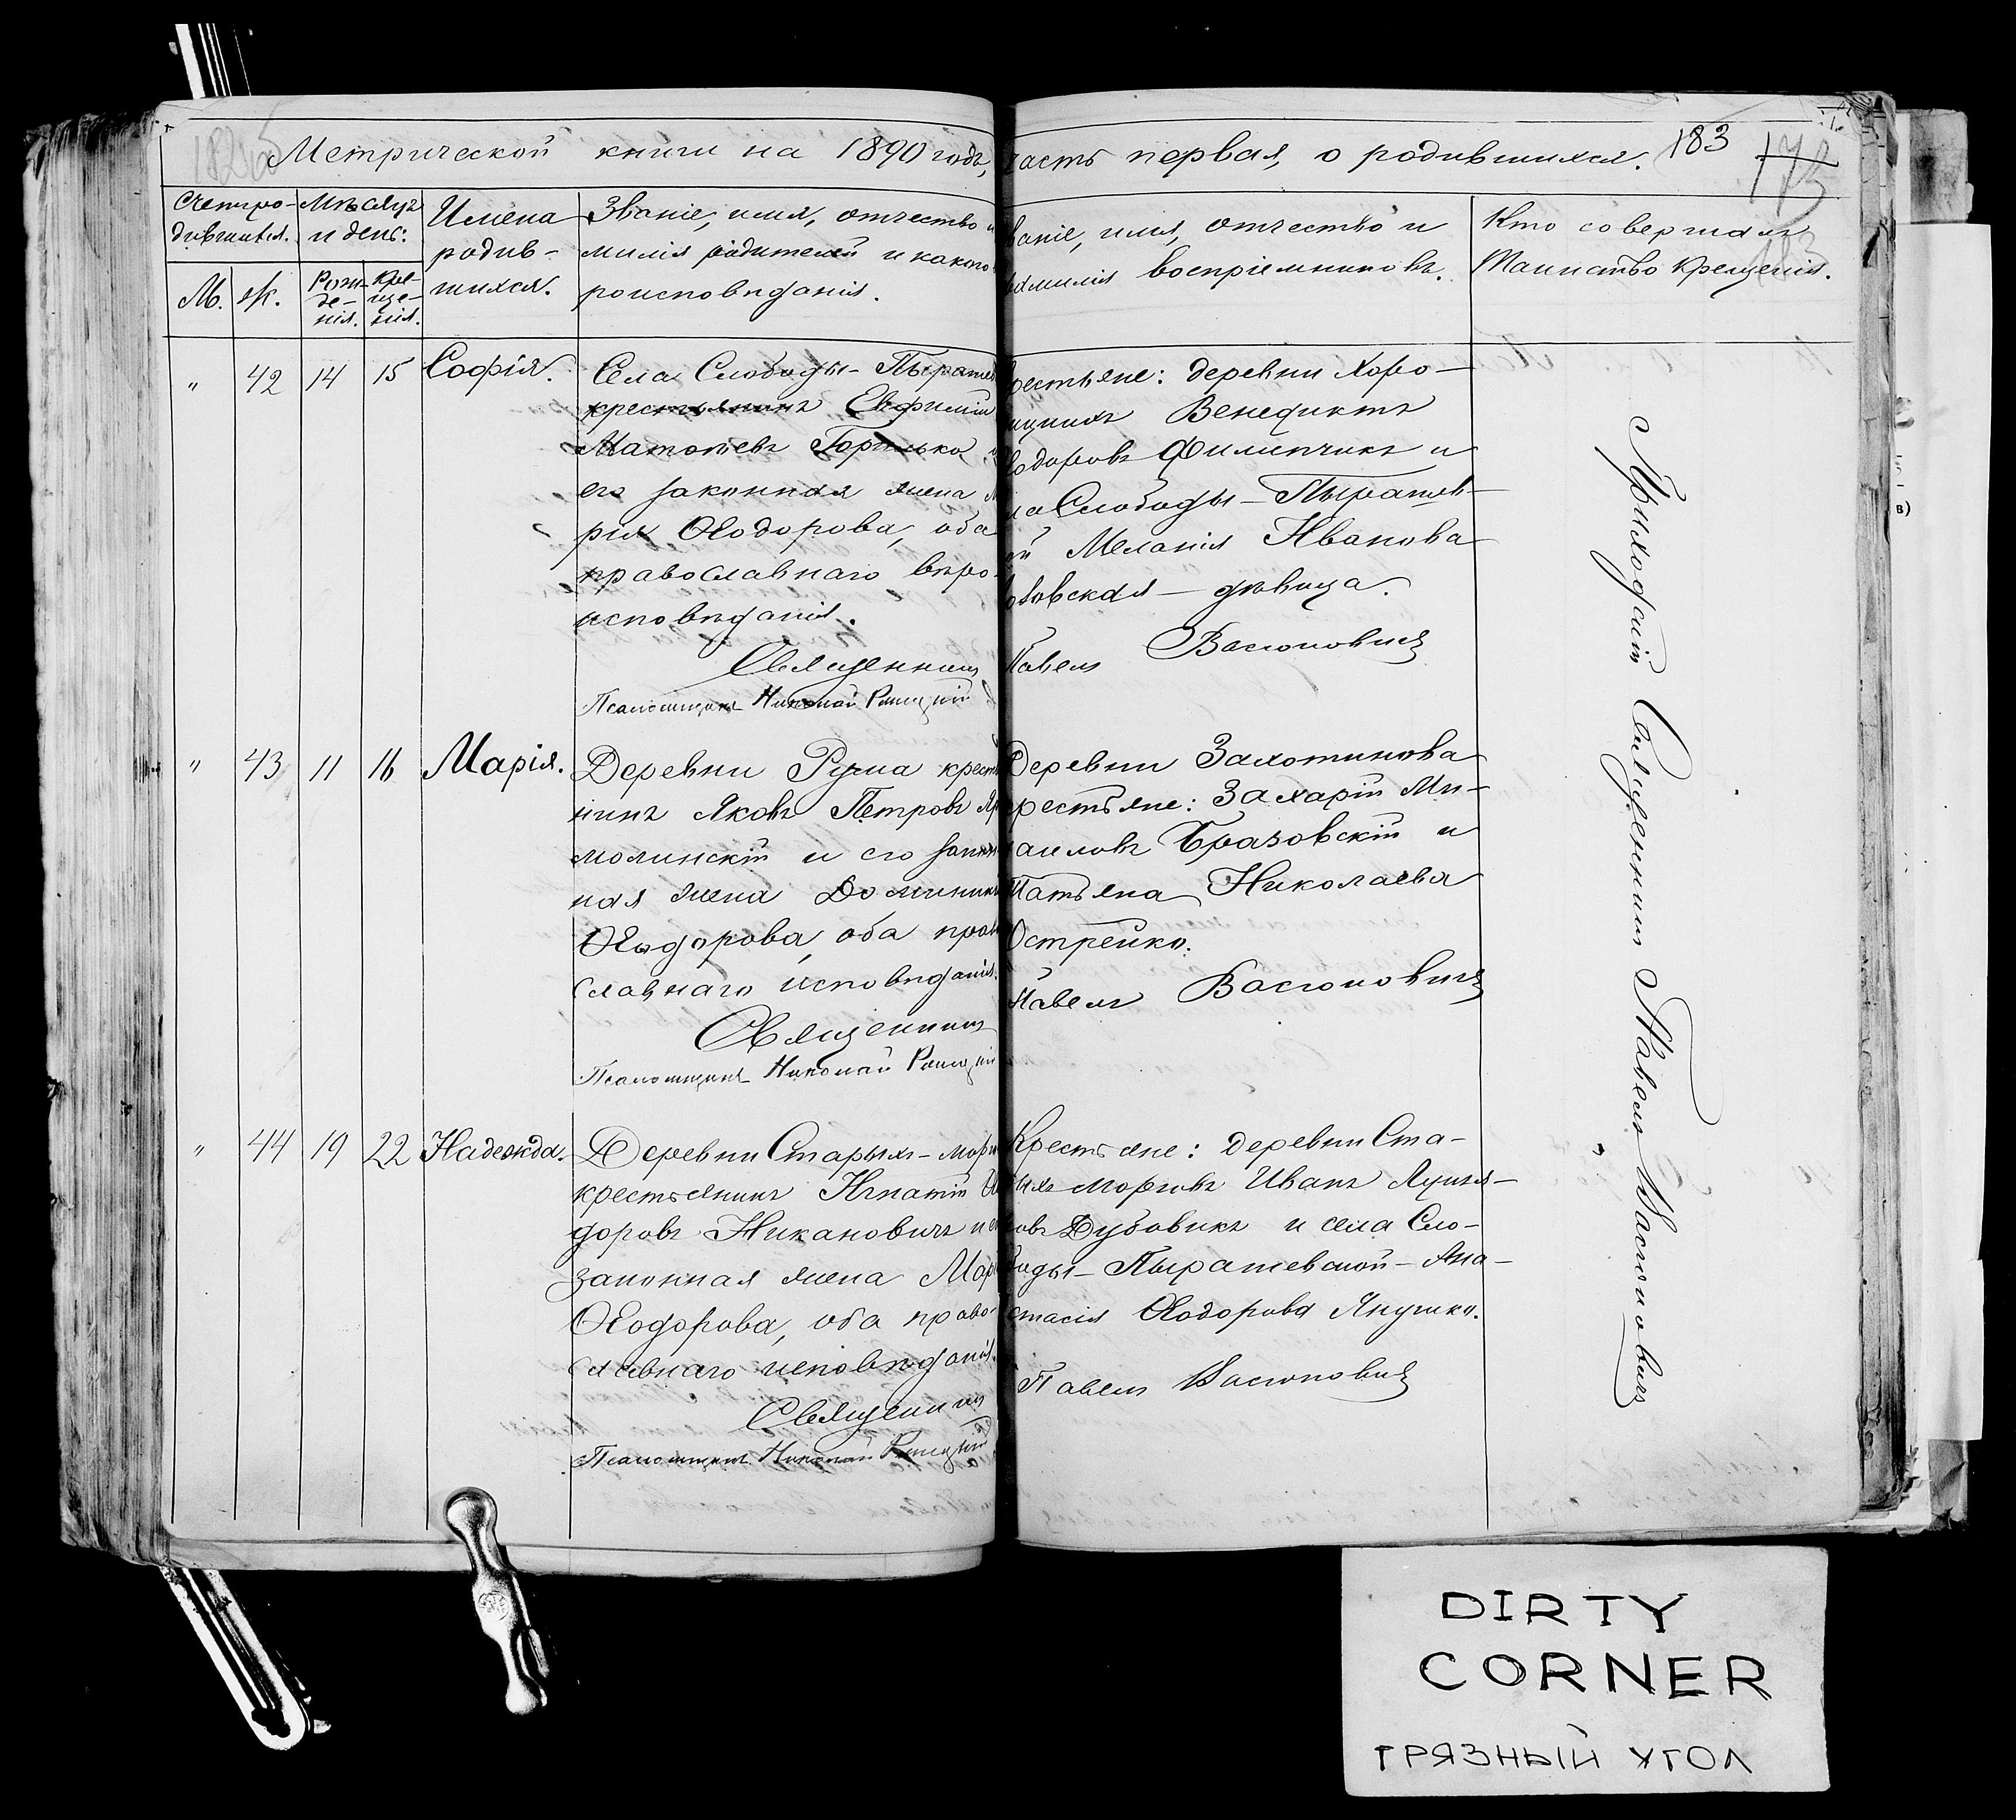 Метрической книги на 1890 годъ, часть первая, о родившихся. 183
Счетъ ро-
дившихся.
Мѣсяцъ
и день:
М. ж.
Рож-
де-
нія.
Кре-
ще-
нія.
Имена
родив-
шихся.
Званіе, имя, отчество и
милія родителей и какого
роисповѣданія.
Званіе, имя, отчество и
фамилія воспріемниковъ.
Кто совершалъ
Таинство крещенія.
" 42 14 15 Софія.
Села Слободы-Пырашев
крестьянинъ Евфимій
Матѳіевъ Горалько и
его законная жена Ма
рія Ѳеодорова, оба
православнаго вѣро-
исповѣданія.
Священникъ
Псаломщикъ Николай
рестьяне: деревни Хоро-
Венедиктъ
еодоровъ Филипчикъ и
ла Слободы-Пырашев-
ой Меланія Иванова
овская - дѣвица.
Павелъ Васюковичъ
" 43 11 16 Марія.
Деревни Рума кресть
нинъ Яковъ Петровъ Яр
молинскій и его закон
ная жена Доминик
Ѳеодорова, оба право
славнаго исповѣданія.
Священникъ
Псаломщикъ Николай
Деревни Захотинова
рестьяне: Захарій Ми-
хаиловъ Бразовскій и
Татьяна Николаева
Острейко.
Павелъ Васюковичъ
" 44 19 22 Надежда.
Деревни Старыхъ-морг
крестьянинъ Игнатій И
доровъ Никановичъ и ег
законная жена Мар
Ѳеодорова, оба право-
славнаго исповѣданія.
Священникъ
Псаломщикъ Николай
Крестьяне: деревни Ста-
рыхъ-морговъ Иванъ Лукія-
новъ Дубовикъ и села Сло-
боды-Пырашевской - Ана-
стасія Ѳеодорова Янушко.
Павелъ Васюковичъ
Приходскій Священникъ Павелъ Васюковичъ
DIRTY
CORNER
ГРЯЗНЫЙ УГОЛ